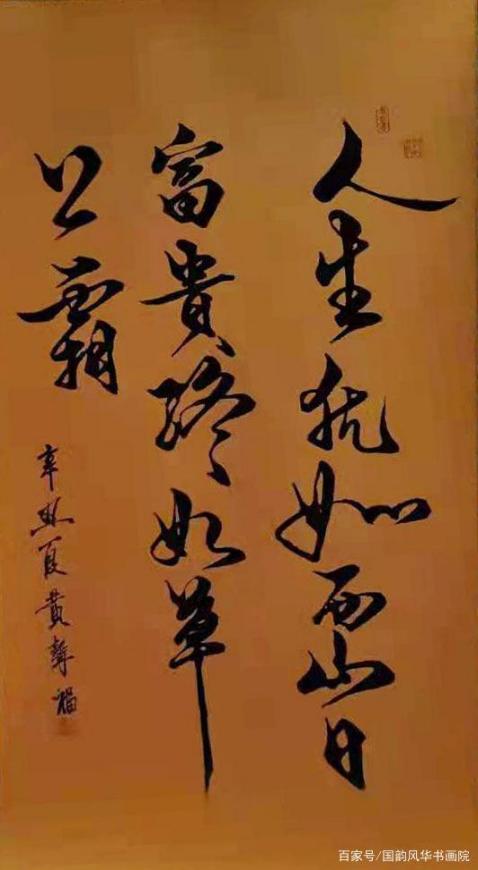 人生犹如西山日
富貴終如草
上霜
辛丑夏黄福
百家号/国韵风华书画院